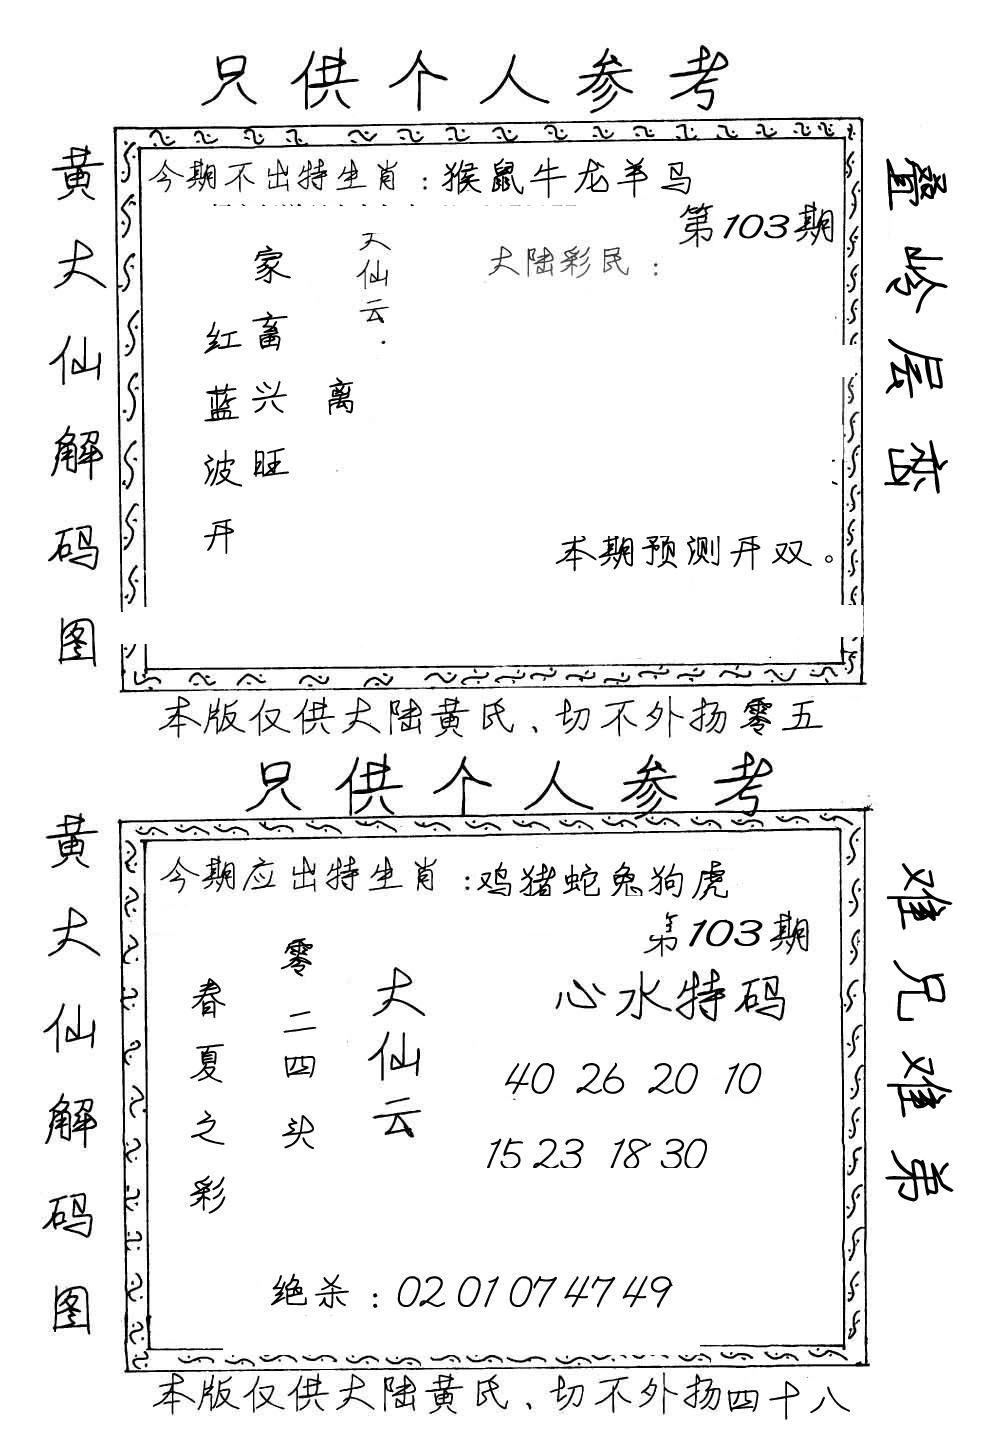 只供个人参考
黄大仙解码图
今期不出特生肖：猴鼠牛龙羊马
第103期
大仙云：
大陆彩民：
离
家畜兴旺
红蓝波开
本期预测开双。
叠岭层峦
本版仅供大陆黄氏、切不外扬零五
只供个人参考
黄大仙解码图
今期应出特生肖：鸡猪蛇兔狗虎
第103期
大仙云
零二四头
春夏之彩
心水特码
40 26 20 10
15 23 18 30
绝杀：02 01 07 47 49
难兄难弟
本版仅供大陆黄氏、切不外扬四十八